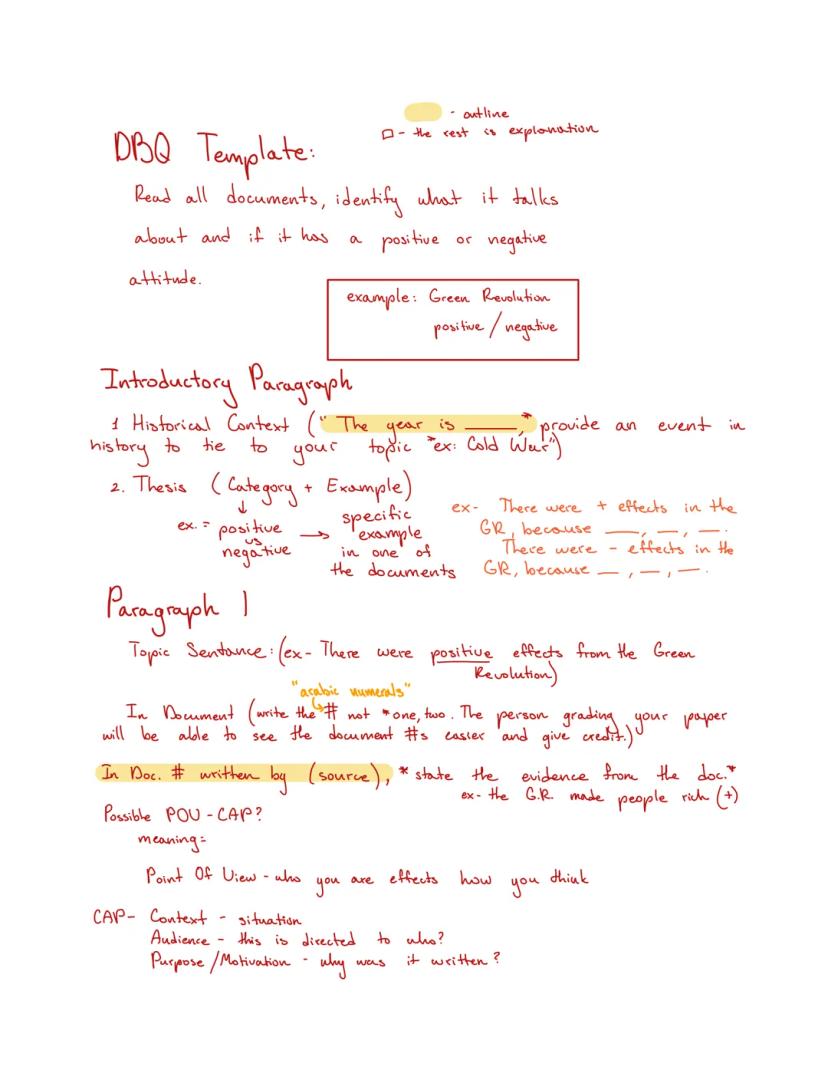 - outline
□ - the rest is explanation
DBQ Template:
Read all documents, identify what it talks
about and if it has a positive or negative
attitude.
example: Green Revolution
positive / negative
Introductory Paragraph
1 Historical Context (" The year is ____," * provide an event in
history to tie to your topic *ex: Cold War")
2. Thesis (Category + Example)
↓
ex. = positive
vs
negative
→ specific
example
in one of
the documents
ex- There were + effects in the
GR, because ___, __, __.
There were - effects in the
GR, because __, __, __.
Paragraph 1
Topic Sentence: (ex- There were positive effects from the Green
Revolution)
"arabic numerals"
In Document (write the # not *one, two. The person grading your paper
will be able to see the document #s easier and give credit.)
In Doc. # written by (source), * state the evidence from the doc.*
ex- the G.R. made people rich (+)
Possible POV - CAP?
meaning=
Point Of View - who you are effects how you think
CAP- Context - situation
Audience - this is directed to who?
Purpose/Motivation - why was it written?